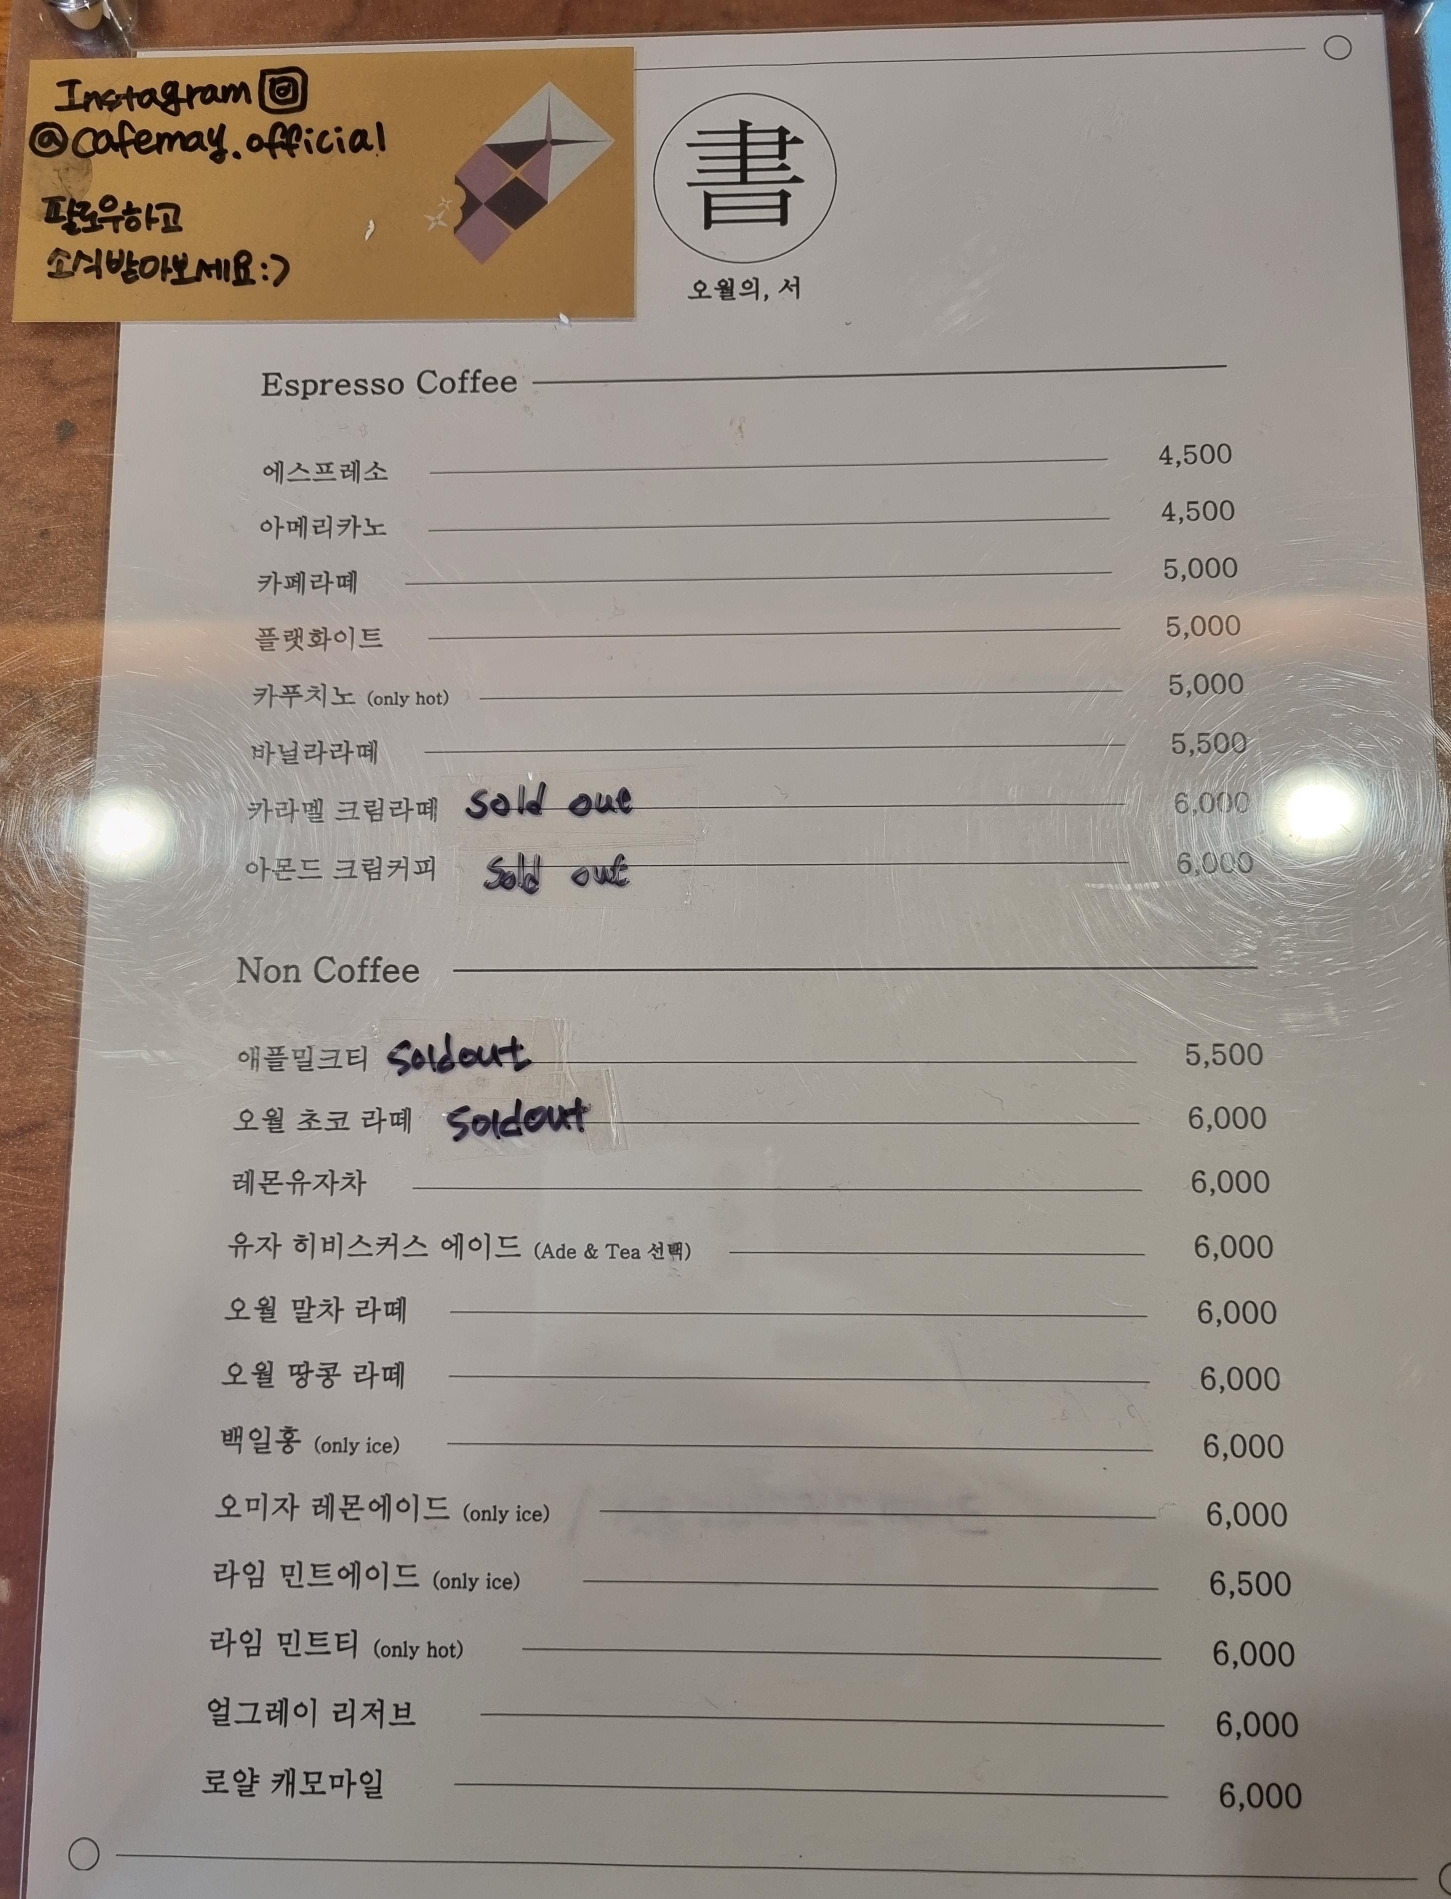 Instagram
@cafemay.official
팔로우하고
소식받아보세요:)
書
오월의, 서
Espresso Coffee
에스프레소 4,500
아메리카노 4,500
카페라떼 5,000
플랫화이트 5,000
카푸치노 (only hot) 5,000
바닐라라떼 5,500
카라멜 크림라떼 Sold out 6,000
아몬드 크림커피 Sold out 6,000
Non Coffee
애플밀크티 Soldout 5,500
오월 초코 라떼 Soldout 6,000
레몬유자차 6,000
유자 히비스커스 에이드 (Ade & Tea 선택) 6,000
오월 말차 라떼 6,000
오월 땅콩 라떼 6,000
백일홍 (only ice) 6,000
오미자 레몬에이드 (only ice) 6,000
라임 민트에이드 (only ice) 6,500
라임 민트티 (only hot) 6,000
얼그레이 리저브 6,000
로얄 캐모마일 6,000